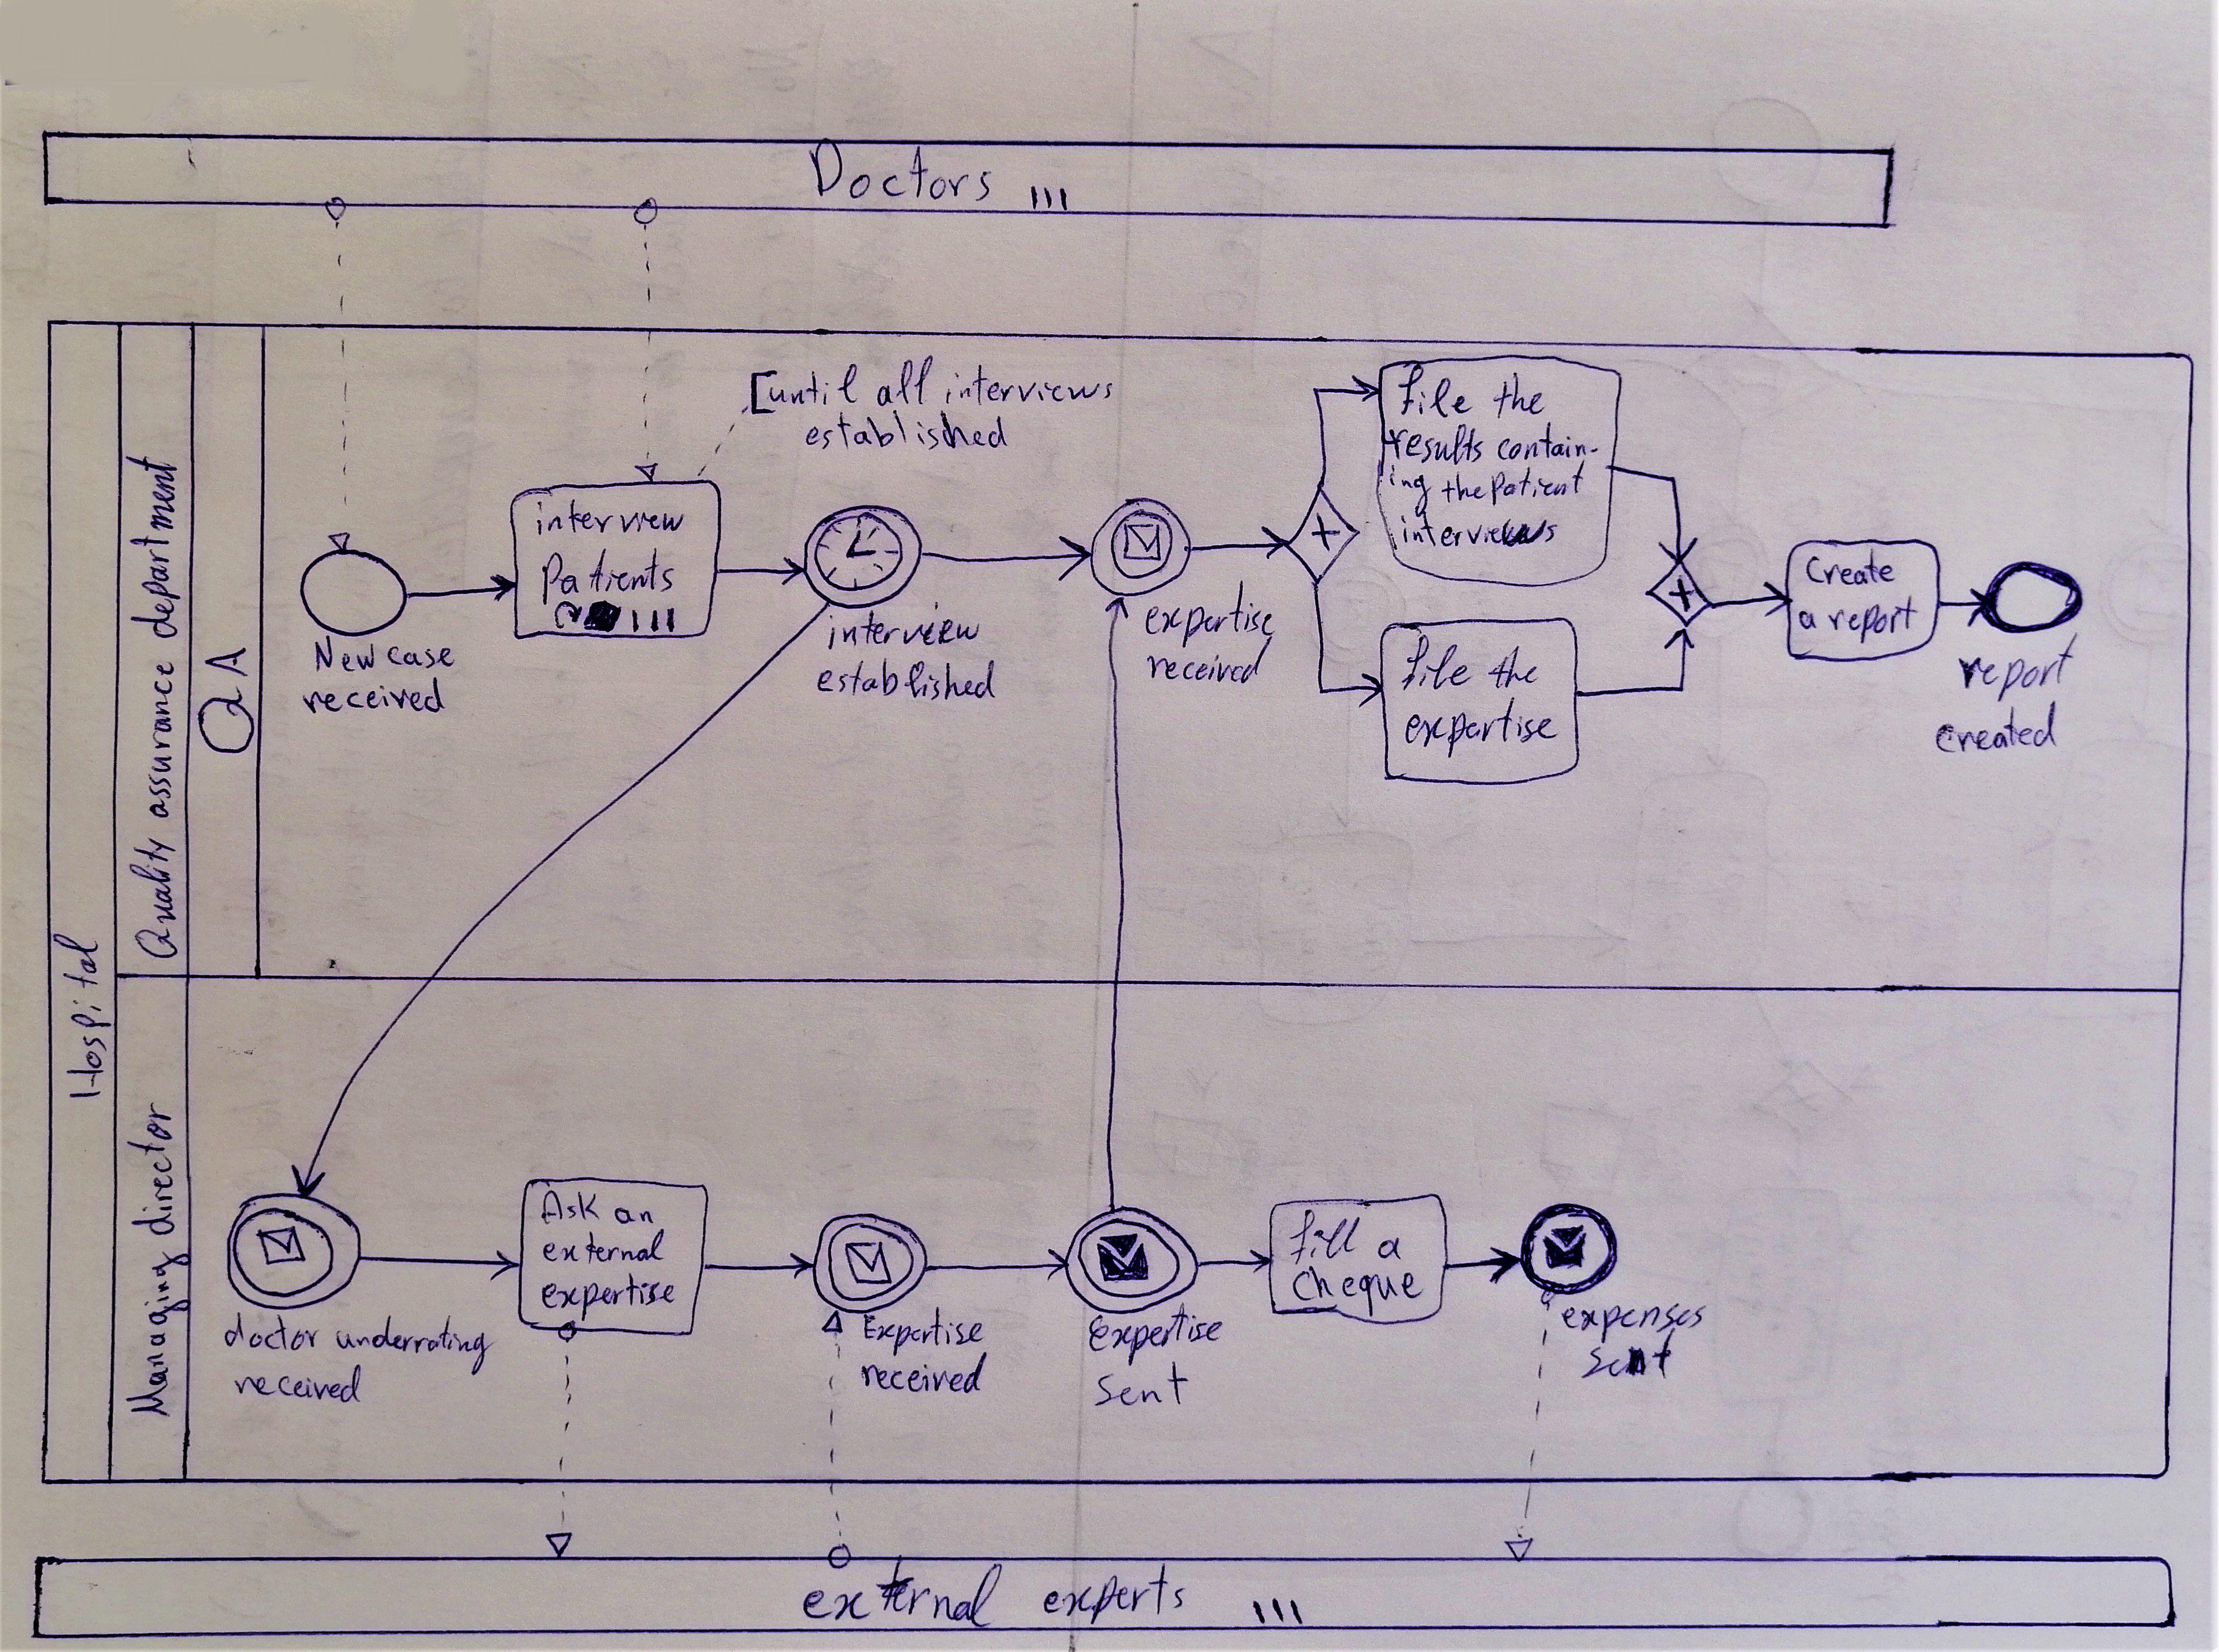 Doctors
Hospital
Quality assurance department
QA
[until all interviews
established
New case
received
interview
Patients
interview
established
expertise
received
File the
results contain-
ing the Patient
interviews
File the
expertise
Create
a report
report
created
Managing director
doctor underrating
received
Ask an
external
expertise
Expertise
received
Expertise
sent
fill a
cheque
expenses
sent
external experts